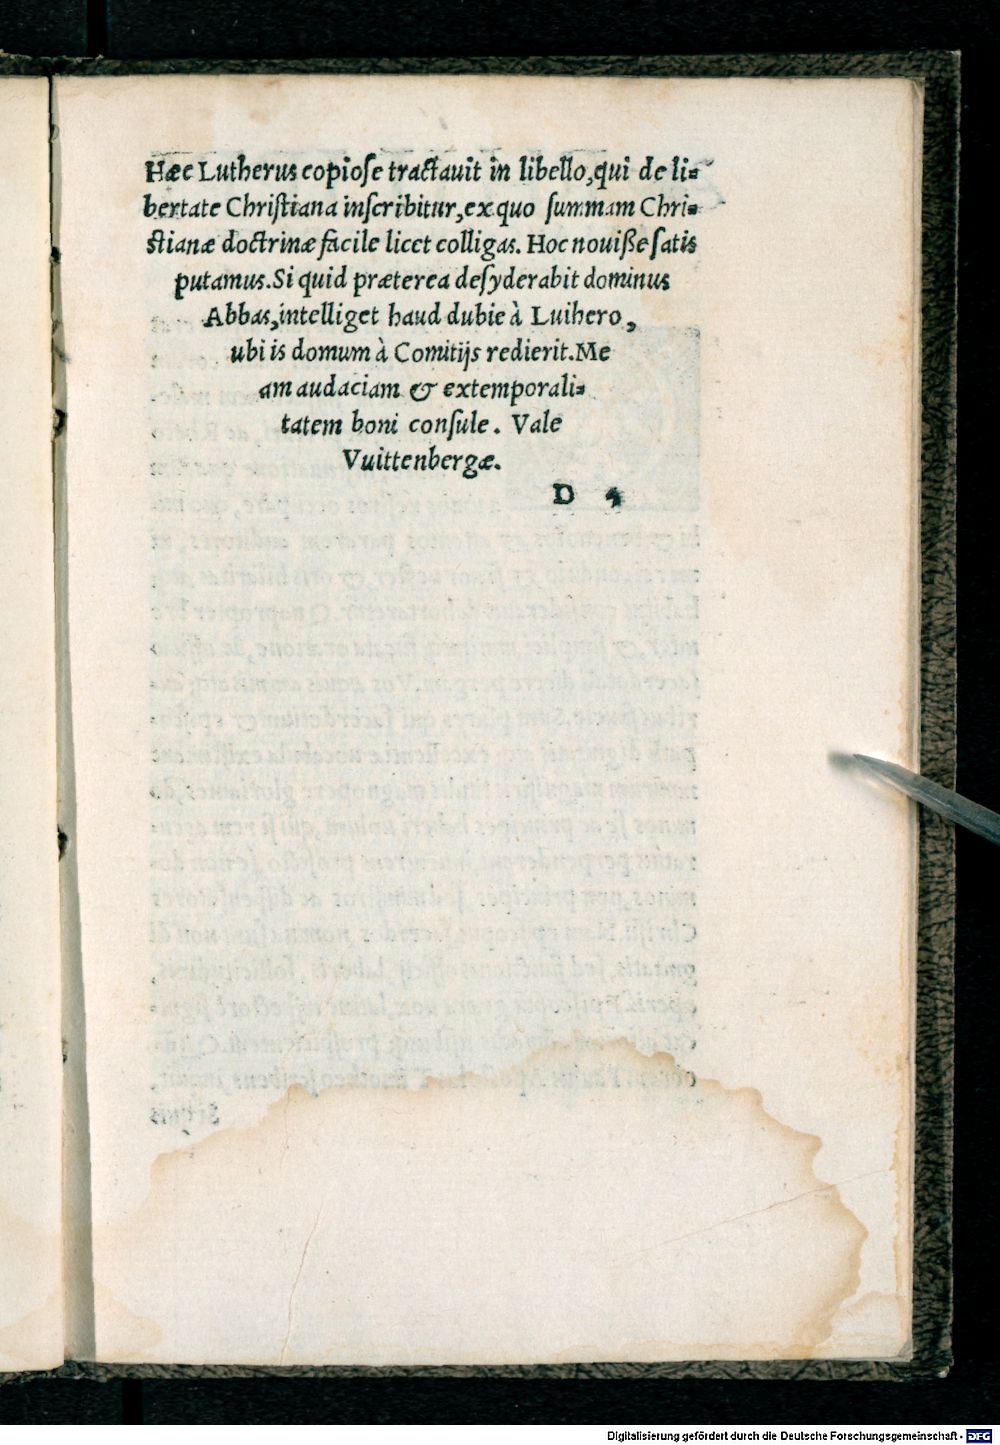 Hæc Lutherus copioſe tractauit in libello, qui de li⸗
bertate Chriſtiana inſcribitur, ex quo ſummam Chri⸗
ſtianæ doctrinæ facile licet colligas. Hoc nouiße ſatis
putamus. Si quid præterea deſyderabit dominus
Abbas, intelliget haud dubie à Luthero,
ubi is domum à Comitijs redierit. Me
am audaciam & extemporali⸗
tatem boni conſule. Vale
Vuittenbergæ.
D 4
Digitalisierung gefördert durch die Deutsche Forschungsgemeinschaft - DFG